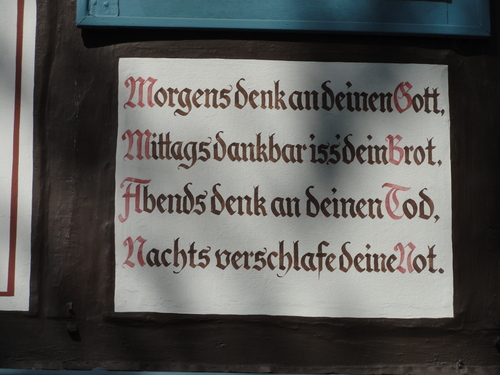 Morgens denk an deinen Gott,
Mittags dankbar iss dein Brot.
Abends denk an deinen Tod,
Nachts verschlafe deine Not.